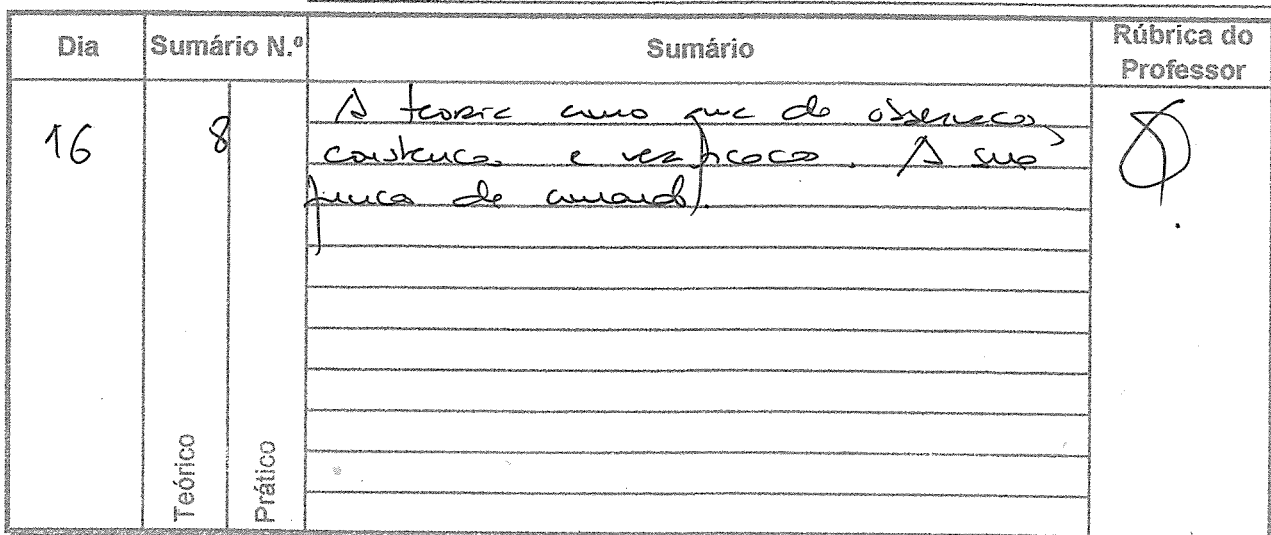 Dia Sumário N.º Sumário Rúbrica do Professor
16 8 A teoria como guia da observação,
construção e verificação. A sua
função de comando.
Teórico Prático